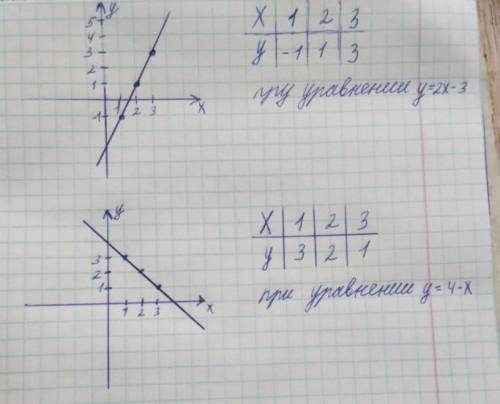 y
5
4
3
2
1
1 2 3 x
-1
X 1 2 3
y -1 1 3
пру уравнении y=2x-3
y
3
2
1
1 2 3 x
X 1 2 3
y 3 2 1
при уравнении y=4-x